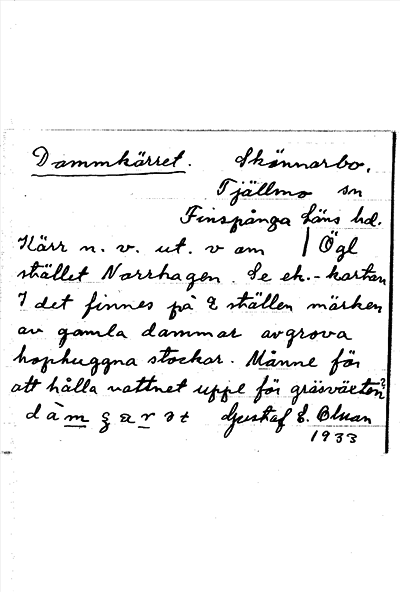 Dammkärret. Skönnarbo,
Tjällmo sn
Finspånga läns hd.
Kärr n. v. ut. v om | Ögl
stället Norrhagen. Se ek.-kartan
I det finnes på 2 ställen märken
av gamla dammar av grova
hophuggna stockar. Månne för
att hålla vattnet uppe för gräsväxten?
Gustaf E. Olsson
1933